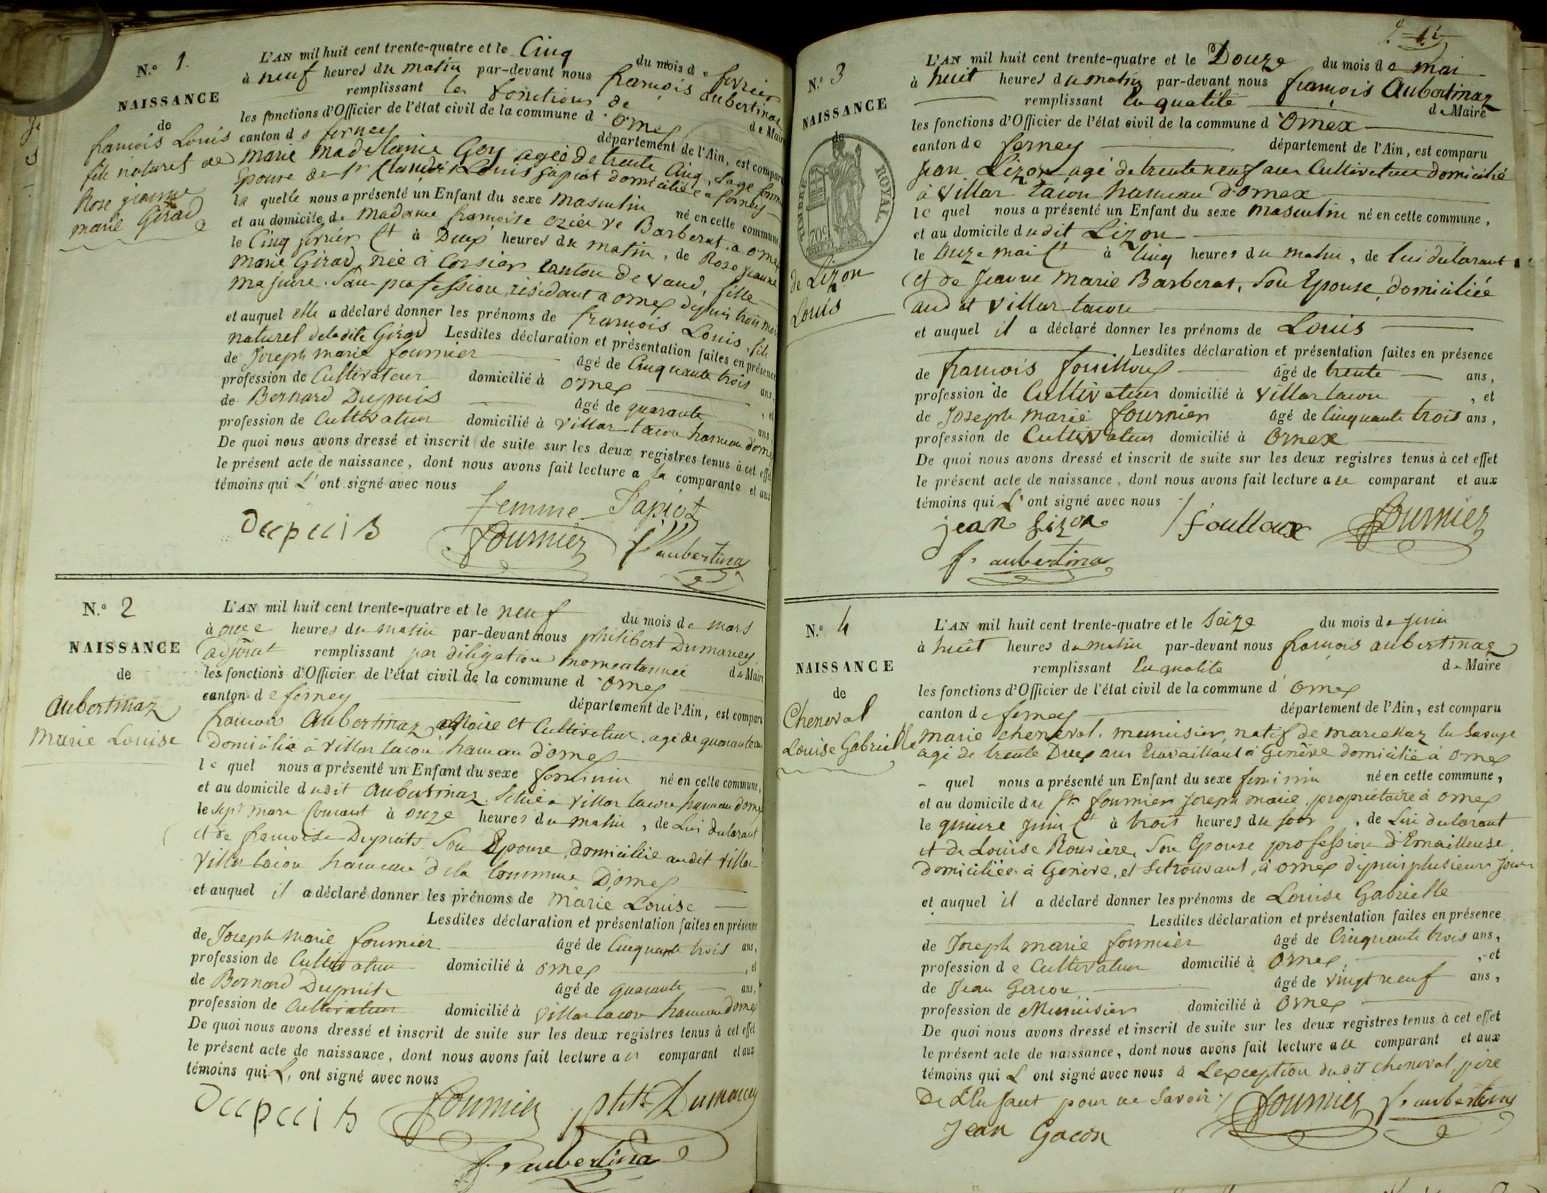 N.° 1.
NAISSANCE
de
françois Louis
fils naturel de
Rose jeanne
marie Girad
L'AN mil huit cent trente-quatre et le Cinq du mois de fevrier
à neuf heures du matin par-devant nous françois aubertinaz
remplissant les fonctions de de Maire
les fonctions d'Officier de l'état civil de la commune d'Ornex
canton de ferney département de l'Ain, est comparu
marie madelaine Goy agée de trente Cinq, Sage femme
Epouse de Sr Claude Louis papiot domiciliée a ferney
la quelle nous a présenté un Enfant du sexe masculin né en cette commune,
et au domicile de madame françoise ve Barberat a ornex
le Cinq fevrier Ct à Deux heures du matin, de Rose jeanne
marie Girad, née à Corsier canton de vaud, fille
majeure. Sans profession, résidant a ornex depuis trois mois
et auquel elle a déclaré donner les prénoms de françois Louis, fils
naturel de ladite Girad Lesdites déclaration et présentation faites en présence
de Joseph marie fournier âgé de Cinquante trois ans,
profession de Cultivateur domicilié à ornex , et
de Bernard Dupuis âgé de quarante ans,
profession de Cultivateur domicilié à villar tacon hameau d'ornex
De quoi nous avons dressé et inscrit de suite sur les deux registres tenus à cet effet
le présent acte de naissance, dont nous avons fait lecture a la comparante et aux
témoins qui L'ont signé avec nous
femme Papiot
Dupuis fournier f. aubertinaz
N.° 2
NAISSANCE
de
Aubertinaz
Marie Louise
L'AN mil huit cent trente-quatre et le neuf du mois de mars
à onze heures du matin par-devant nous philibert Dumarcey
adjoint remplissant par délégation momentanée de Maire
les fonctions d'Officier de l'état civil de la commune d'Ornex
canton de ferney département de l'Ain, est comparu
francois Aubertinaz Maire et Cultivateur, agé de quarante
domicilié à villar tacon hameau d'ornex
le quel nous a présenté un Enfant du sexe féminin né en cette commune,
et au domicile dudit Aubertinaz, Situé a villar tacon hameau d'ornex
le sept mars Courant à onze heures du matin, de Lui déclarant
et de francoise Dupuits, Son Epouse, domiciliée audit villar
villar tacon hameau de la Commune D'ornex
et auquel il a déclaré donner les prénoms de Marie Louise
Lesdites déclaration et présentation faites en présence
de Joseph marie fournier âgé de Cinquante trois ans,
profession de Cultivateur domicilié à ornex , et
de Bernard Dupuit âgé de quarante ans,
profession de Cultivateur domicilié à villar tacon hameau d'ornex
De quoi nous avons dressé et inscrit de suite sur les deux registres tenus à cet effet
le présent acte de naissance, dont nous avons fait lecture au comparant et aux
témoins qui L'ont signé avec nous
Dupuis fournier phte Dumarcey
f. aubertinaz
N.° 3
NAISSANCE
de
TIMBRE ROYAL
de Lizon
Louis
L'AN mil huit cent trente-quatre et le Douze du mois de mai
à huit heures du matin par-devant nous françois Aubertinaz
remplissant la qualité de Maire
les fonctions d'Officier de l'état civil de la commune d'Ornex
canton de ferney département de l'Ain, est comparu
Jean Lizon agé de trente neuf ans Cultivateur domicilié
à Villar tacon hameau d'ornex
le quel nous a présenté un Enfant du sexe masculin né en cette commune,
et au domicile dudit Lizon
le Onze mai Ct à Cinq heures du matin, de lui déclarant
et de Jeanne Marie Barberat, Son Epouse, domiciliée
audit Villar tacon
et auquel il a déclaré donner les prénoms de Louis
Lesdites déclaration et présentation faites en présence
de francois fouilloux âgé de trente ans,
profession de Cultivateur domicilié à villar tacon , et
de Joseph Marie fournier âgé de Cinquante trois ans,
profession de Cultivateur domicilié à Ornex
De quoi nous avons dressé et inscrit de suite sur les deux registres tenus à cet effet
le présent acte de naissance, dont nous avons fait lecture au comparant et aux
témoins qui L'ont signé avec nous
jean Lizon foulloux fournier
f. aubertinaz
N.° 4
NAISSANCE
de
Cheneval
Louise Gabrielle
L'AN mil huit cent trente-quatre et le Seize du mois de juin
à huit heures du matin par-devant nous françois aubertinaz
remplissant La qualité de Maire
les fonctions d'Officier de l'état civil de la commune d'Ornex
canton de ferney département de l'Ain, est comparu
Marie cheneval, menuisier, natif de en Savoye
agé de trente Deux ans travaillant à Genève domicilié à ornex
quel nous a présenté un Enfant du sexe féminin né en cette commune,
et au domicile du Sr. fournier Joseph marie propriétaire à ornex
le quinze juin Ct à trois heures du soir , de Lui déclarant
et de Louise Rouviere, Son Epouse profession d'Emailleuse
domiciliée à Genève, et se trouvant, à ornex depuis plusieurs jours
et auquel il a déclaré donner les prénoms de Louise Gabrielle
Lesdites déclaration et présentation faites en présence
de Joseph marie fournier âgé de Cinquante trois ans,
profession de Cultivateur domicilié à Ornex , et
de Jean Gacon âgé de vingt neuf ans,
profession de Menuisier domicilié à Ornex
De quoi nous avons dressé et inscrit de suite sur les deux registres tenus à cet effet
le présent acte de naissance, dont nous avons fait lecture au comparant et aux
témoins qui L'ont signé avec nous à L'exception dudit cheneval, père
De L'Enfant pour ne Savoir fournier f. aubertinaz
Jean Gacon